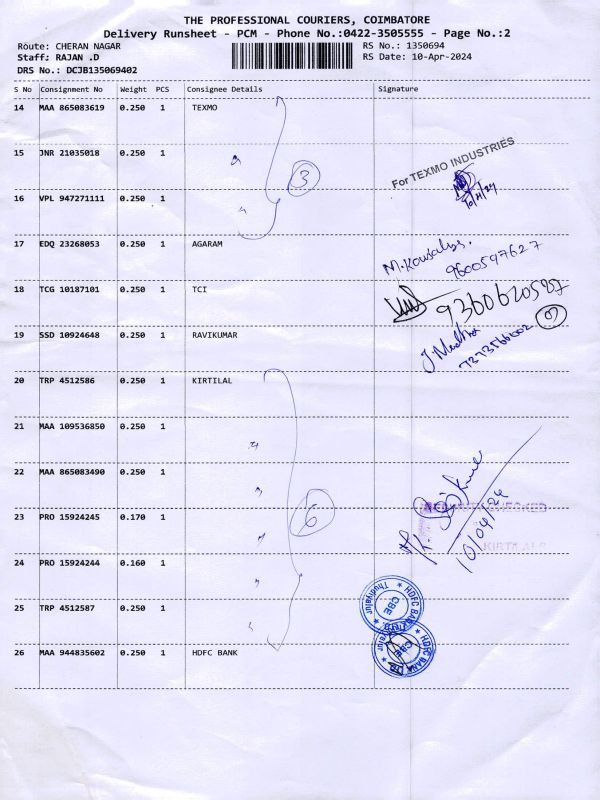 THE PROFESSIONAL COURIERS, COIMBATORE
Delivery Runsheet - PCM - Phone No.:0422-3505555 - Page No.:2
Route: CHERAN NAGAR
RS No.: 1350694
Staff: RAJAN .D
RS Date: 10-Apr-2024
DRS No.: DCJB135069402
S No Consignment No Weight PCS Consignee Details Signature
14 MAA 865083619 0.250 1 TEXMO
15 JNR 21035018 0.250 1
For TEXMO INDUSTRIES
3
16 VPL 947271111 0.250 1
10/4/24
17 EDQ 23268053 0.250 1 AGARAM
M.Kowsalya.
9600597627
18 TCG 10187101 0.250 1 TCI
9360620587
19 SSD 10924648 0.250 1 RAVIKUMAR
20 TRP 4512586 0.250 1 KIRTILAL
21 MAA 109536850 0.250 1
22 MAA 865083490 0.250 1
23 PRO 15924245 0.170 1
6
10/04/24
24 PRO 15924244 0.160 1
25 TRP 4512587 0.250 1
HDFC BANK
Thudiyalur
CBE
26 MAA 944835602 0.250 1 HDFC BANK
HDFC BANK
CBE